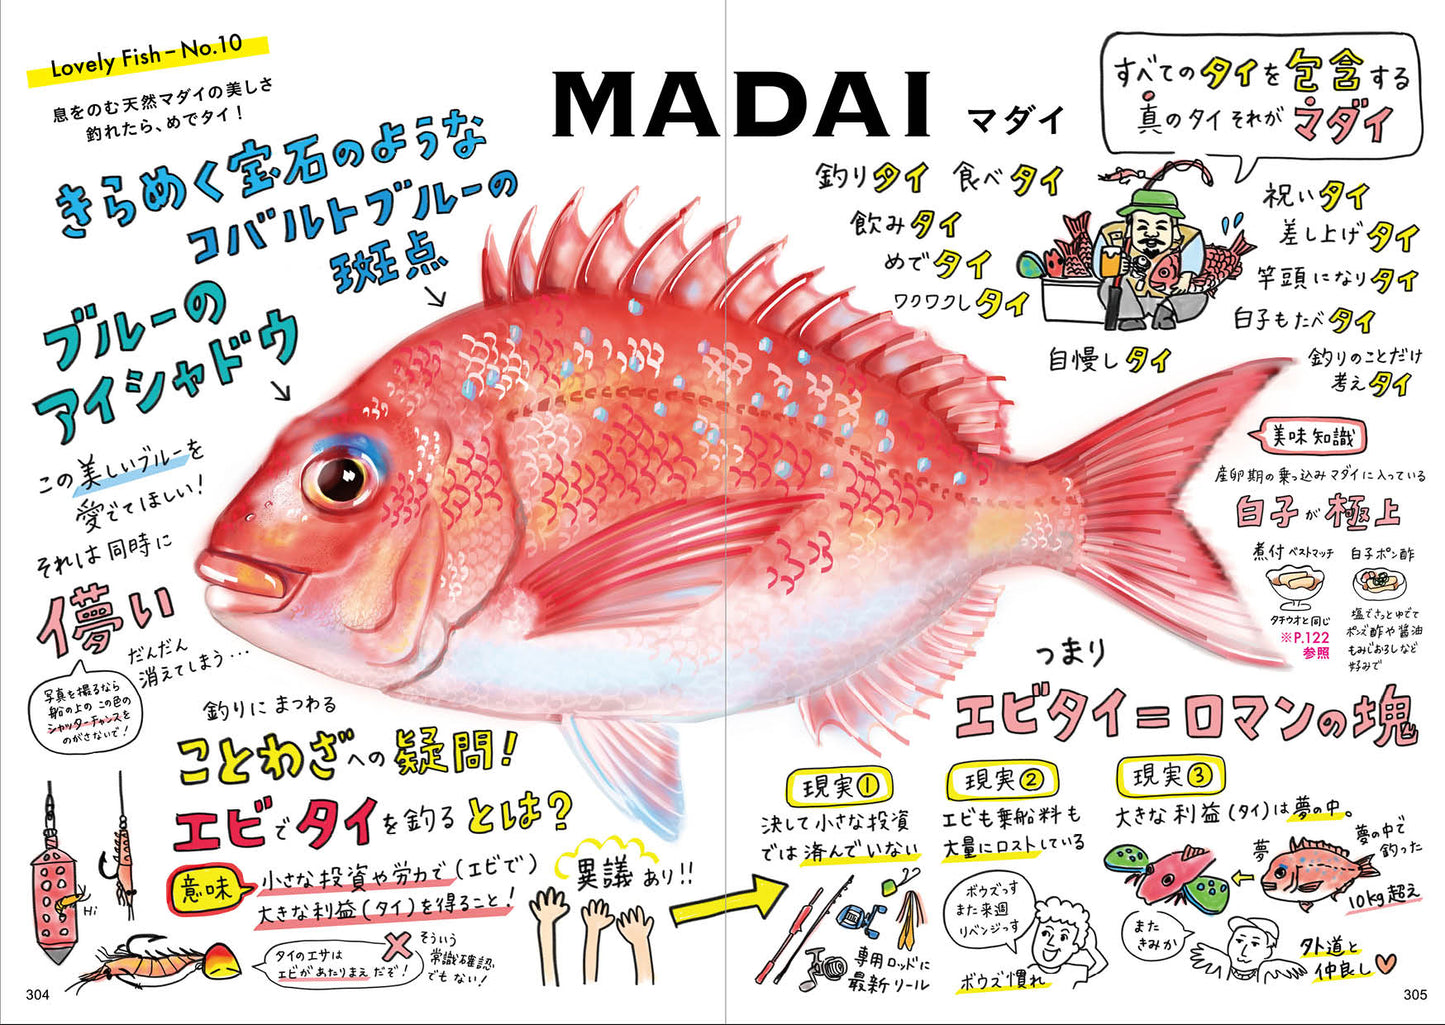 Lovely Fish – No.10
息をのむ天然マダイの美しさ
釣れたら、めでタイ！
きらめく宝石のような
コバルトブルーの
斑点
ブルーの
アイシャドウ
この美しいブルーを
愛でてほしい！
それは同時に
儚い
だんだん
消えてしまう…
写真を撮るなら
船の上のこの色の
シャッターチャンスを
のがさないで！
MADAI マダイ
すべてのタイを包含する
真のタイそれがマダイ
釣りタイ 食べタイ
飲みタイ
めでタイ
ワクワクしタイ
自慢しタイ
祝いタイ
差し上げタイ
竿頭になりタイ
白子もたべタイ
釣りのことだけ
考えタイ
美味知識
産卵期の乗っ込みマダイに入っている
白子が極上
煮付ベストマッチ
タチウオと同じ
※P.122
参照
白子ポン酢
塩でさっとゆでて
ポン酢や醤油
もみじおろしなど
好みで
釣りにまつわる
ことわざへの疑問！
エビでタイを釣るとは？
意味
小さな投資や労力で（エビで）
大きな利益（タイ）を得ること！
Hi
タイのエサは
エビがあたりまえだぞ！
そういう
常識確認
でもない！
異議あり!!
つまり
エビタイ＝ロマンの塊
現実①
決して小さな投資
では済んでいない
専用ロッドに
最新リール
現実②
エビも乗船料も
大量にロストしている
ボウズっす
また来週
リベンジっす
ボウズ慣れ
現実③
大きな利益（タイ）は夢の中。
夢
夢の中で
釣った
10kg超え
また
きみか
外道と
仲良し
304
305